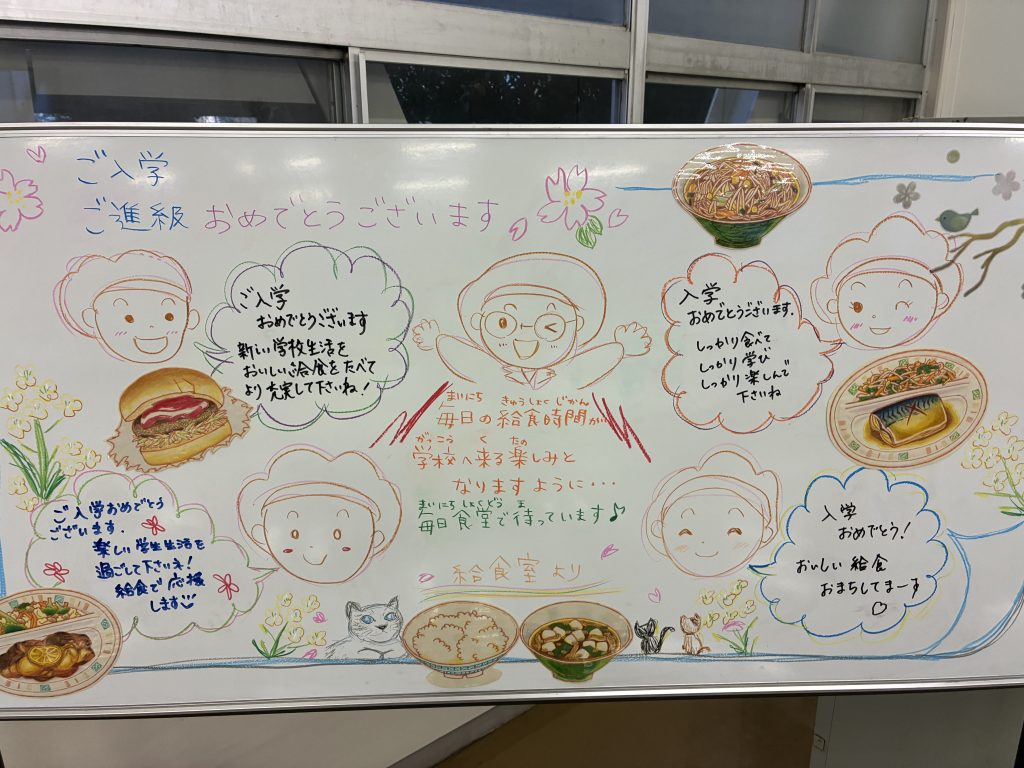 ご入学
ご進級 おめでとうございます
ご入学
おめでとうございます
新しい学校生活を
おいしい給食をたべて
より充実して下さいね！
入学
おめでとうございます.
しっかり食べて
しっかり学び
しっかり楽しんで
下さいね
まいにち きゅうしょくじかん
毎日の給食時間が
がっこう く たの
学校へ来る楽しみと
なりますように・・・
まいにち しょくどう ま
毎日食堂で待っています♪
給食室より
ご入学おめでとう
ございます.
楽しい学生生活を
過ごして下さいネ！
給食で応援
します
入学
おめでとう！
おいしい給食
おまちしてまーす
♡